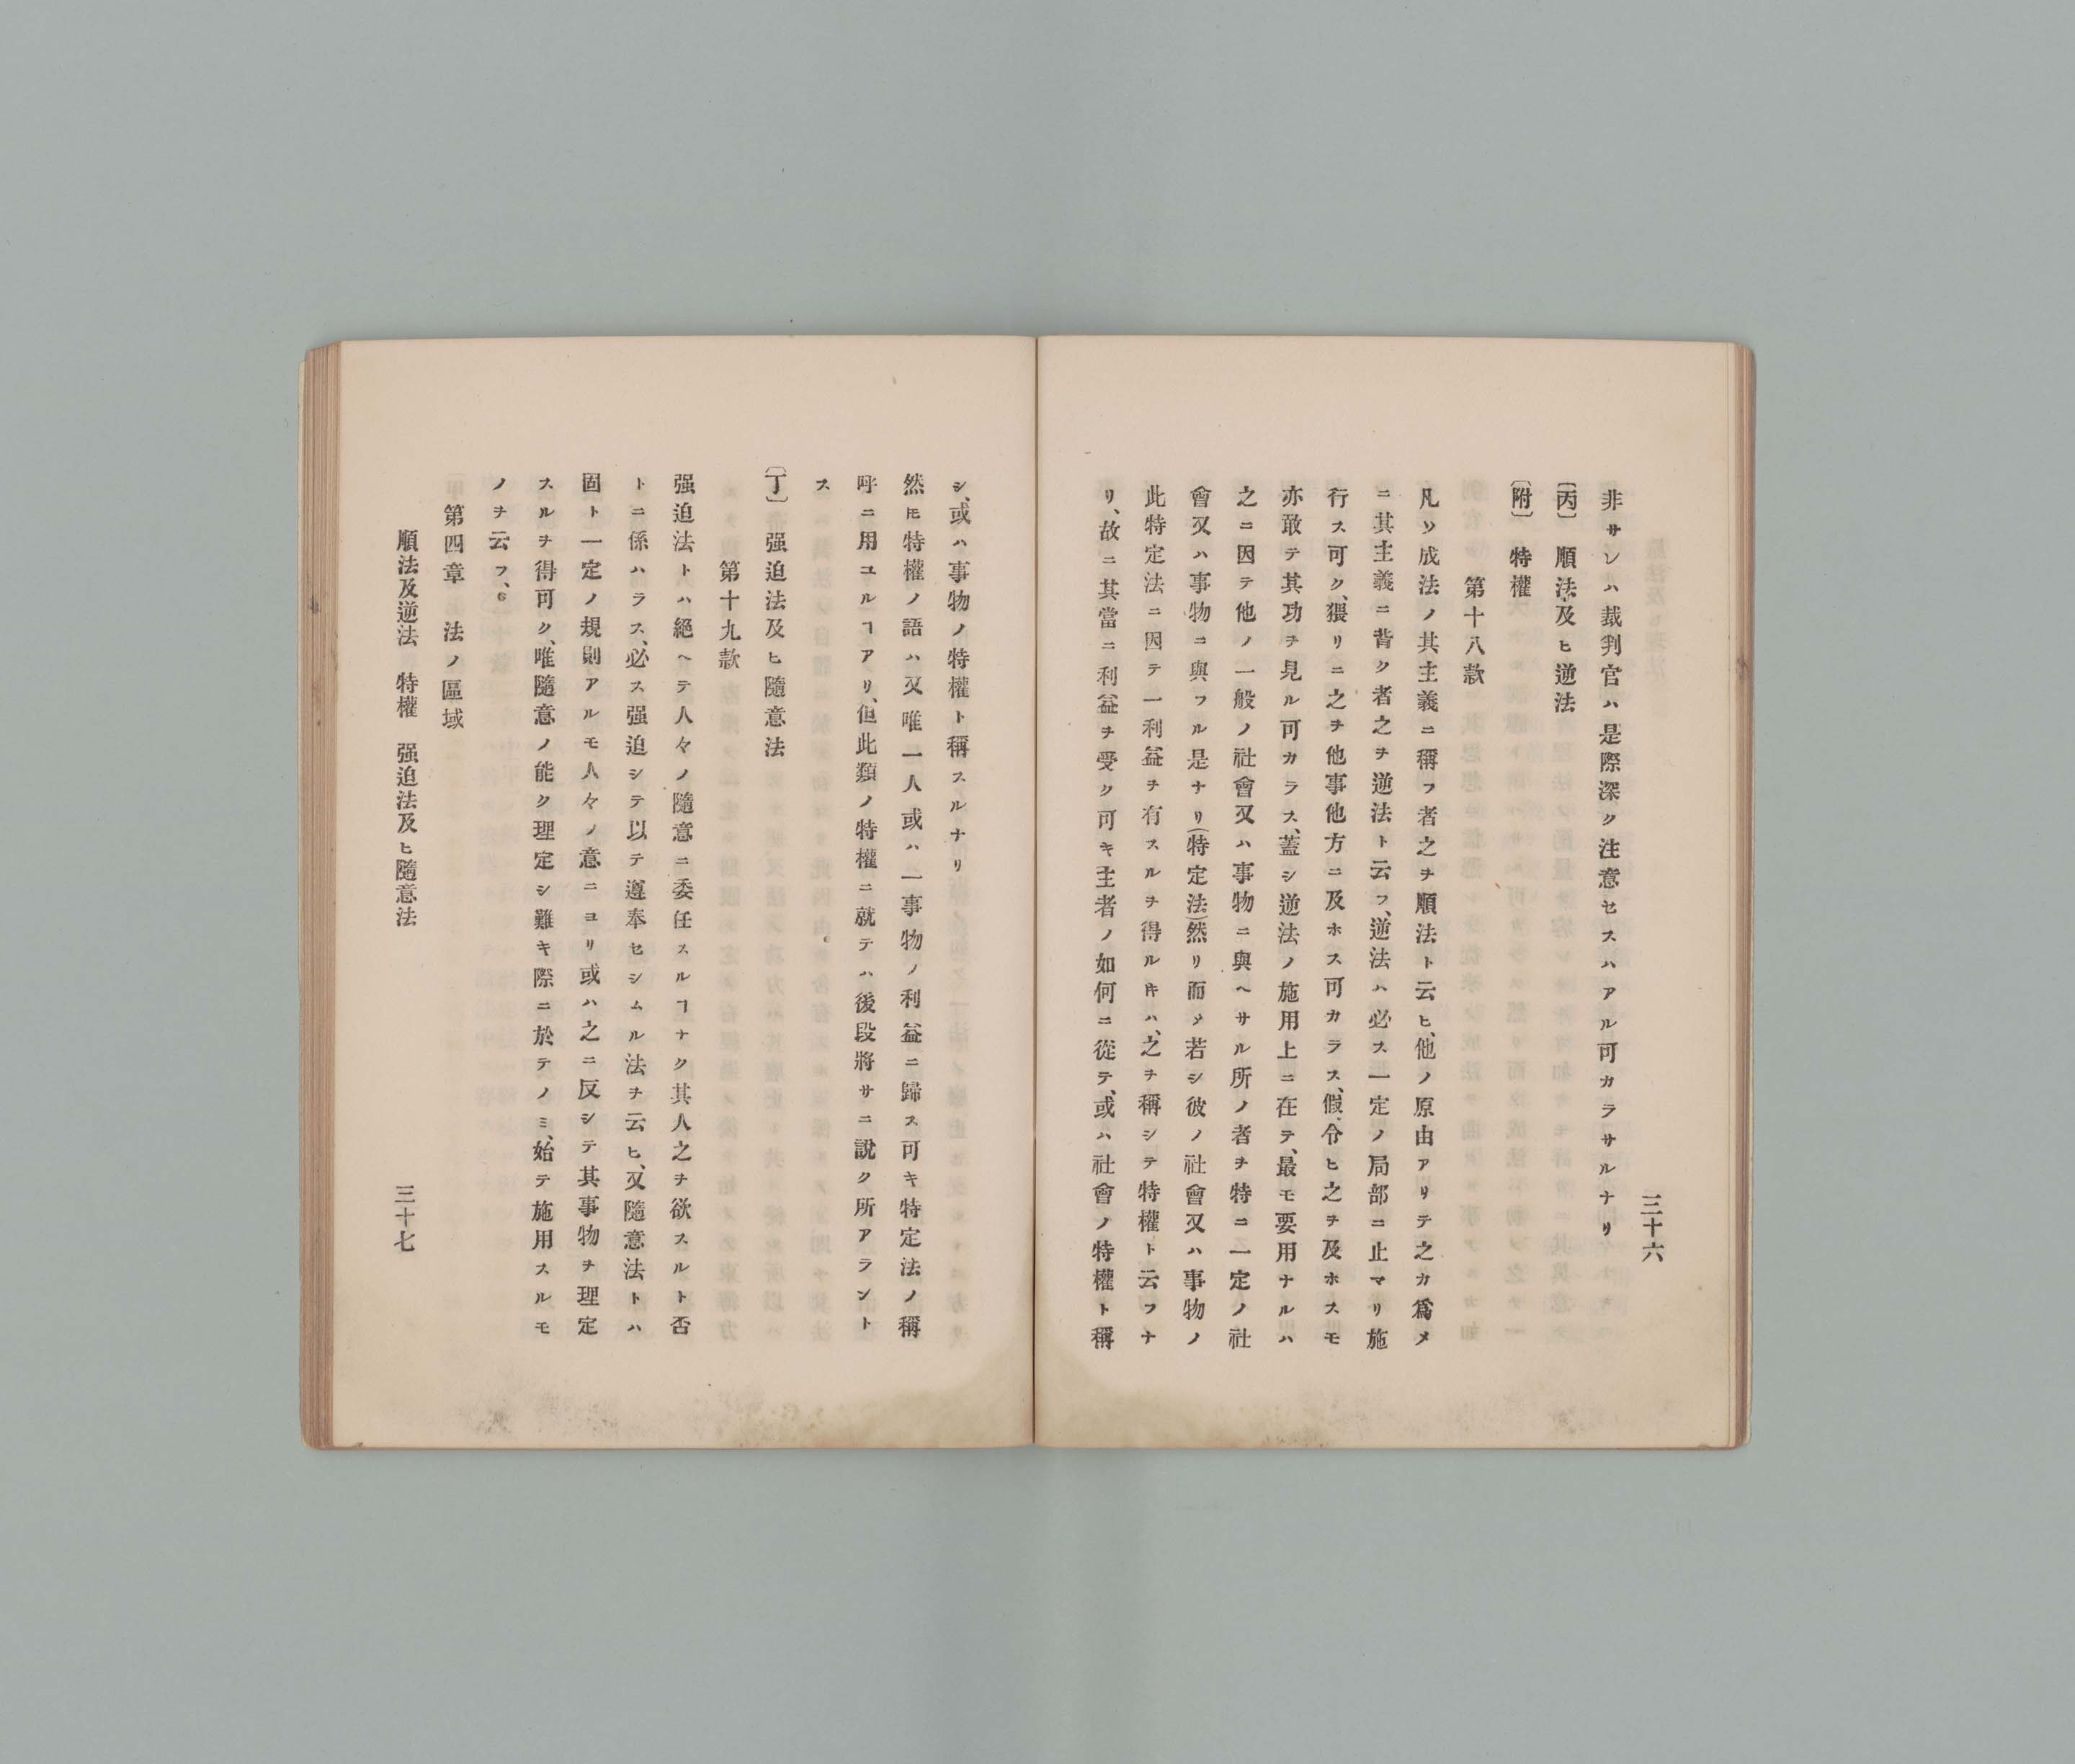 三十六
非サレハ裁判官ハ是際深ク注意セスハアル可カラサルナリ
〔丙〕 順法及ヒ逆法
〔附〕 特權
第十八款
凡ソ成法ノ其主義ニ稱フ者之ヲ順法ト云ヒ、他ノ原由アリテ之カ爲メ
ニ其主義ニ背ク者之ヲ逆法ト云フ、逆法ハ必ス一定ノ局部ニ止マリ施
行ス可ク、猥リニ之ヲ他事他方ニ及ホス可カラス、假令ヒ之ヲ及ホスモ
亦敢テ其功ヲ見ル可カラス、蓋シ逆法ノ施用上ニ在テ、最モ要用ナルハ
之ニ因テ他ノ一般ノ社會又ハ事物ニ與ヘサル所ノ者ヲ特ニ一定ノ社
會又ハ事物ニ與フル是ナリ(特定法)然リ而メ若シ彼ノ社會又ハ事物ノ
此特定法ニ因テ一利益ヲ有スルヲ得ルキハ、之ヲ稱シテ特權ト云フナ
リ、故ニ其當ニ利益ヲ受ク可キ主者ノ如何ニ從テ、或ハ社會ノ特權ト稱
シ、或ハ事物ノ特權ト稱スルナリ
然𪜈特權ノ語ハ又唯一人或ハ一事物ノ利益ニ歸ス可キ特定法ノ稱
呼ニ用ユルヿアリ、但此類ノ特權ニ就テハ後段將サニ說ク所アラント
ス
〔丁〕 强迫法及ヒ隨意法
第十九款
强迫法トハ絕ヘテ人々ノ隨意ニ委任スルヿナク其人之ヲ欲スルト否
トニ係ハラス、必ス强迫シテ以テ遵奉セシムル法ヲ云ヒ、又隨意法トハ
固ト一定ノ規則アルモ人々ノ意ニヨリ或ハ之ニ反シテ其事物ヲ理定
スルヲ得可ク、唯隨意ノ能ク理定シ難キ際ニ於テノミ、始テ施用スルモ
ノヲ云フ、
第四章 法ノ區域
順法及逆法 特權 强迫法及ヒ隨意法
三十七